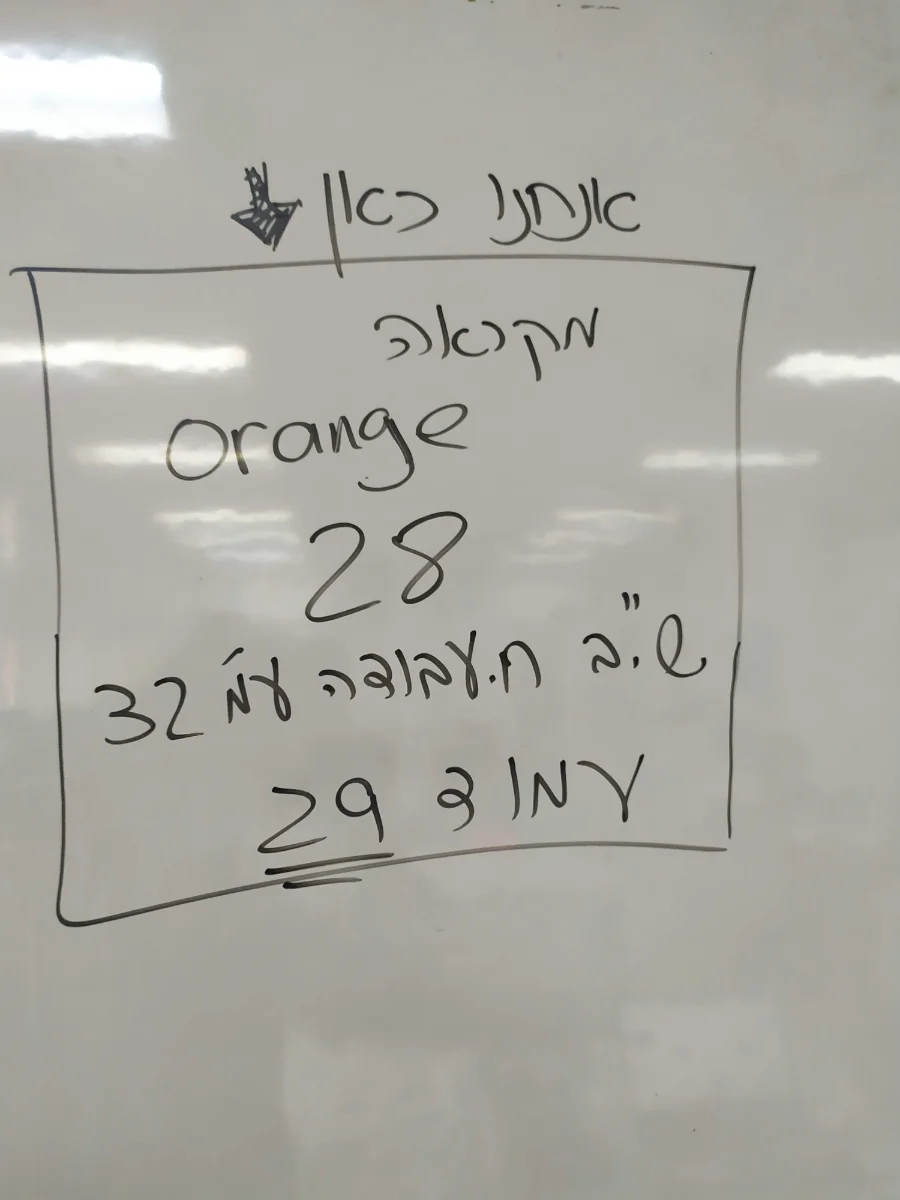 אנחנו כאן
מקראה
orange
28
ש"ב ח.עבודה עמ' 32
עמוד 29